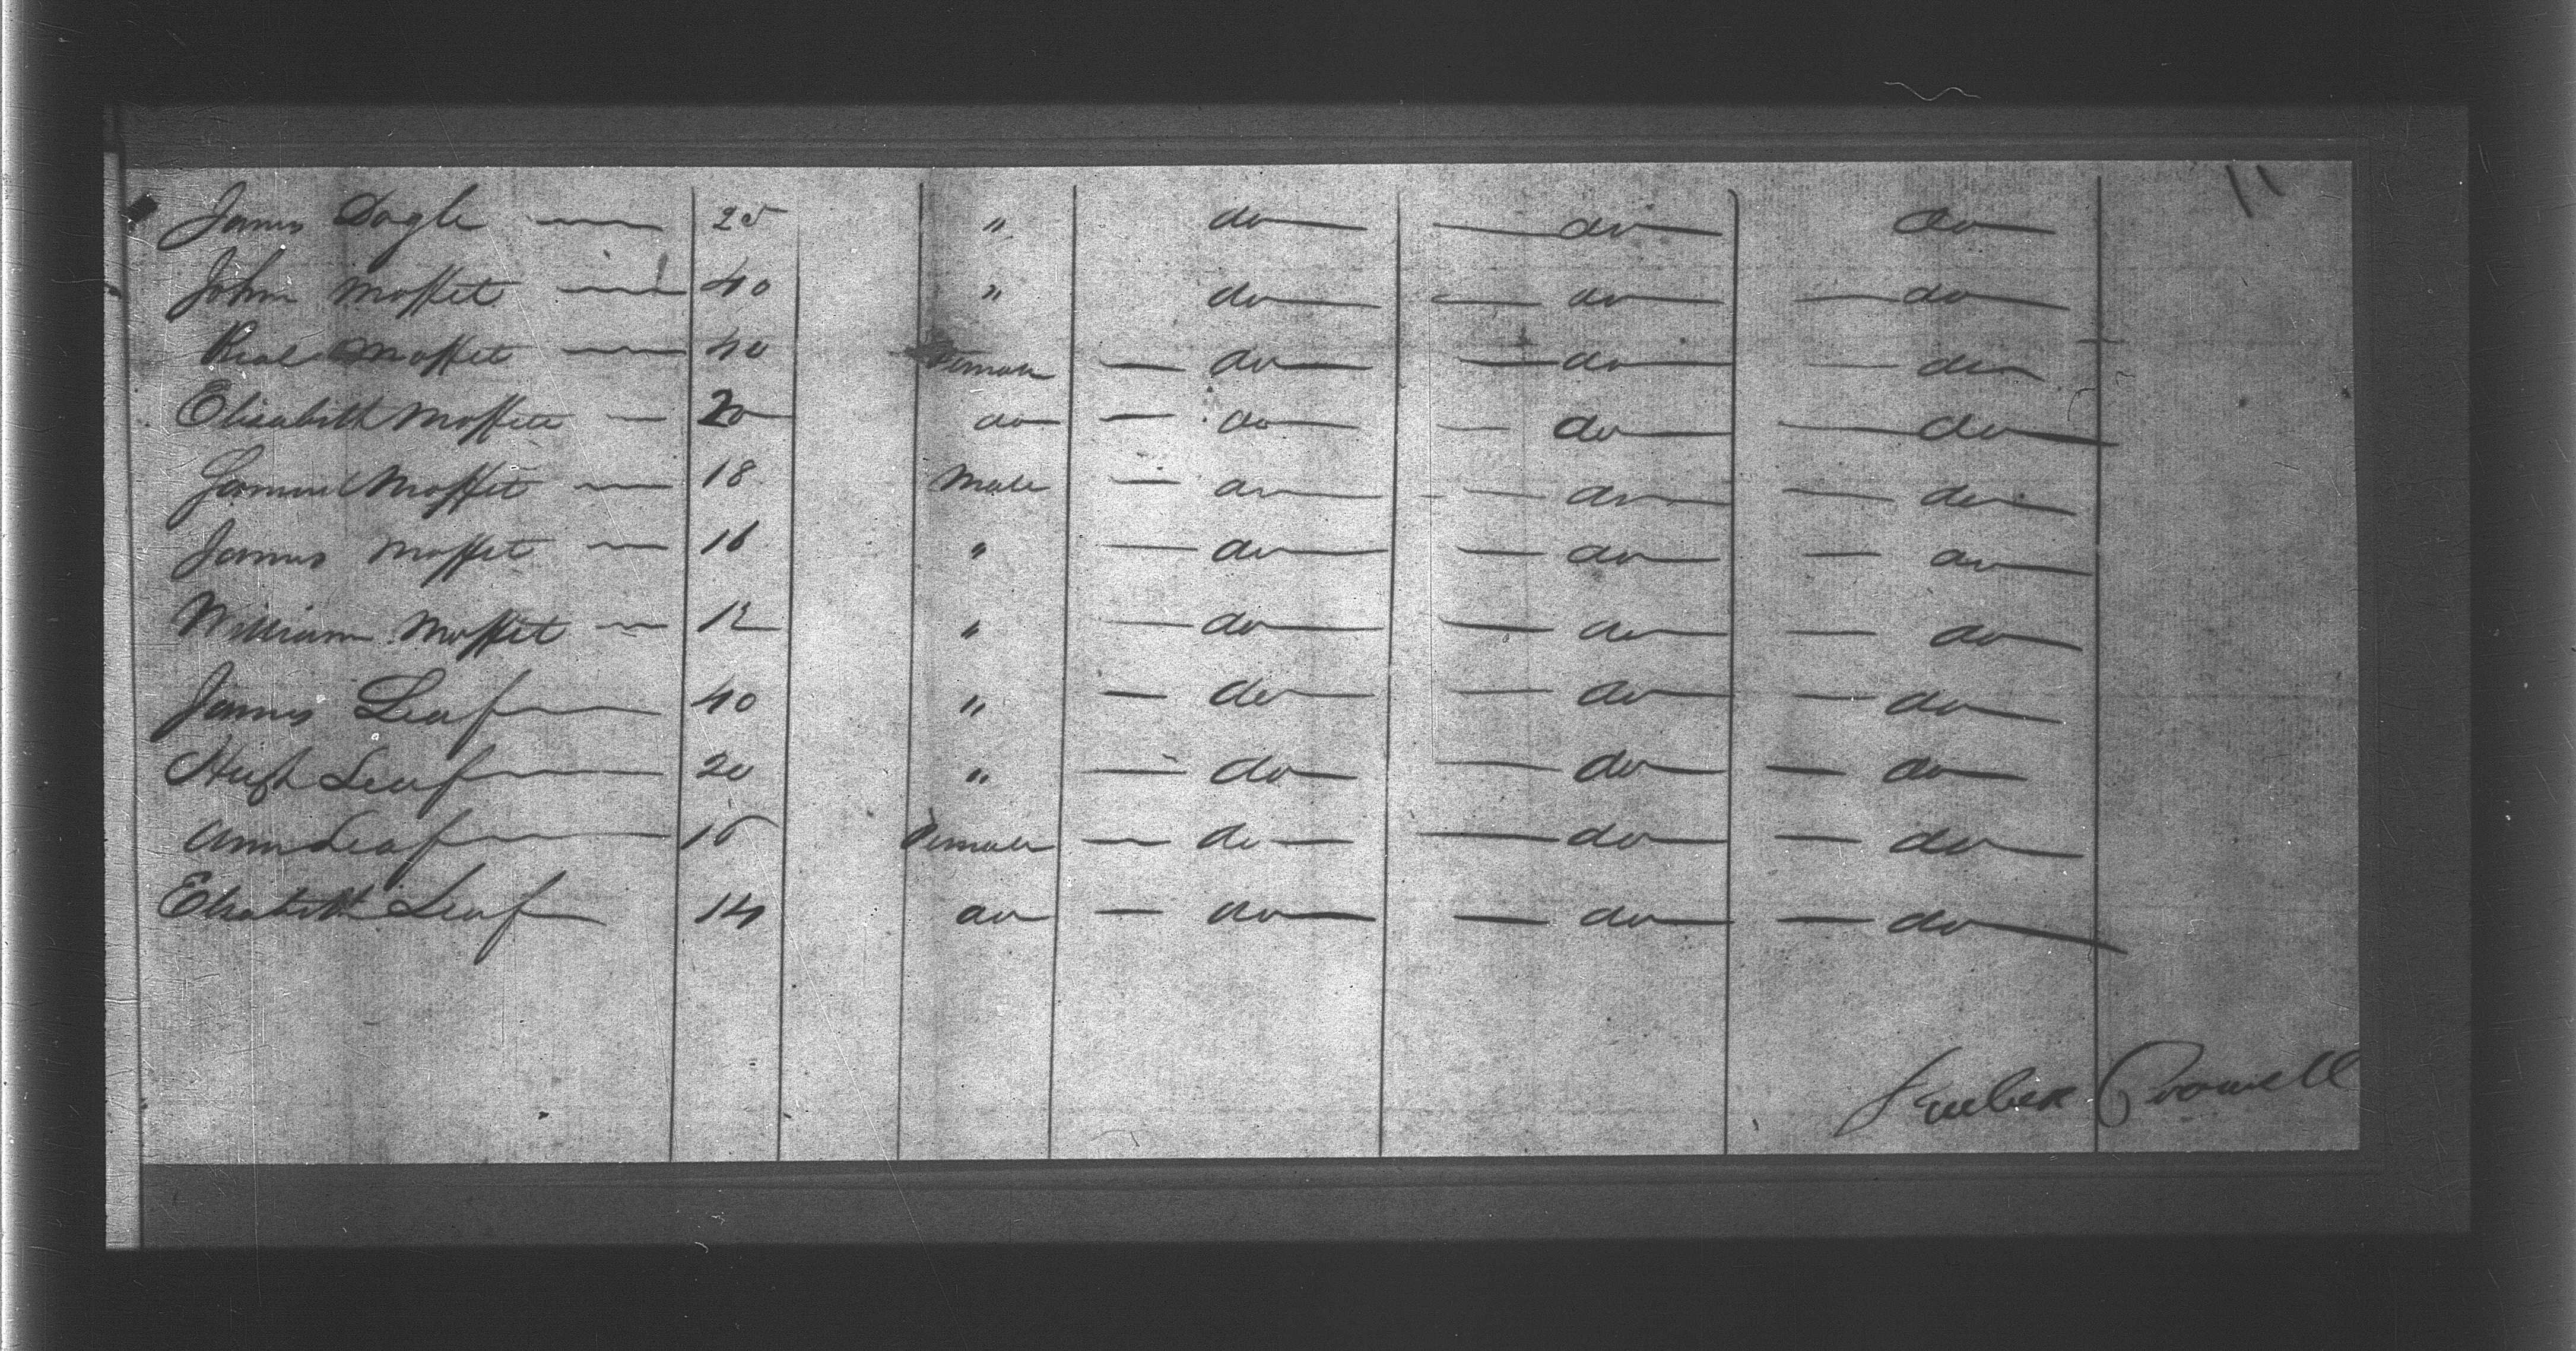 11
James Dogle 25 " do do do
John Moffet 40 " do do do
Moffet 40 Female do do do
Elisabeth Moffett 20 do do do do
Samuel Moffet 18 Male do do do
James Moffet 16 " do do do
William Moffet 12 " do do do
James Leaf 40 " do do do
Hugh Leaf 20 " do do do
Ann Leaf 16 Female do do do
Elisabeth Leaf 14 do do do do
Crowell